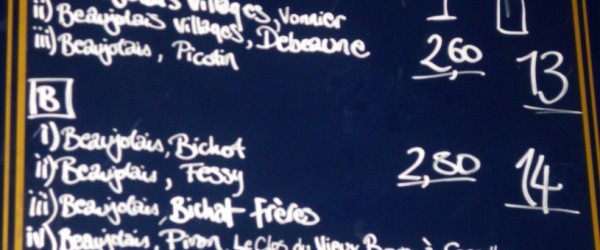 Villages, Vonnier
ii) Beaujolais Villages, Debeaune
iii) Beaujolais, Picotin 2,60 13
B
i) Beaujolais, Bichot
ii) Beaujolais, Fessy 2,80 14
iii) Beaujolais, Bichat Frères
iv) Beaujolais, Piron, Le Clos du Vieux